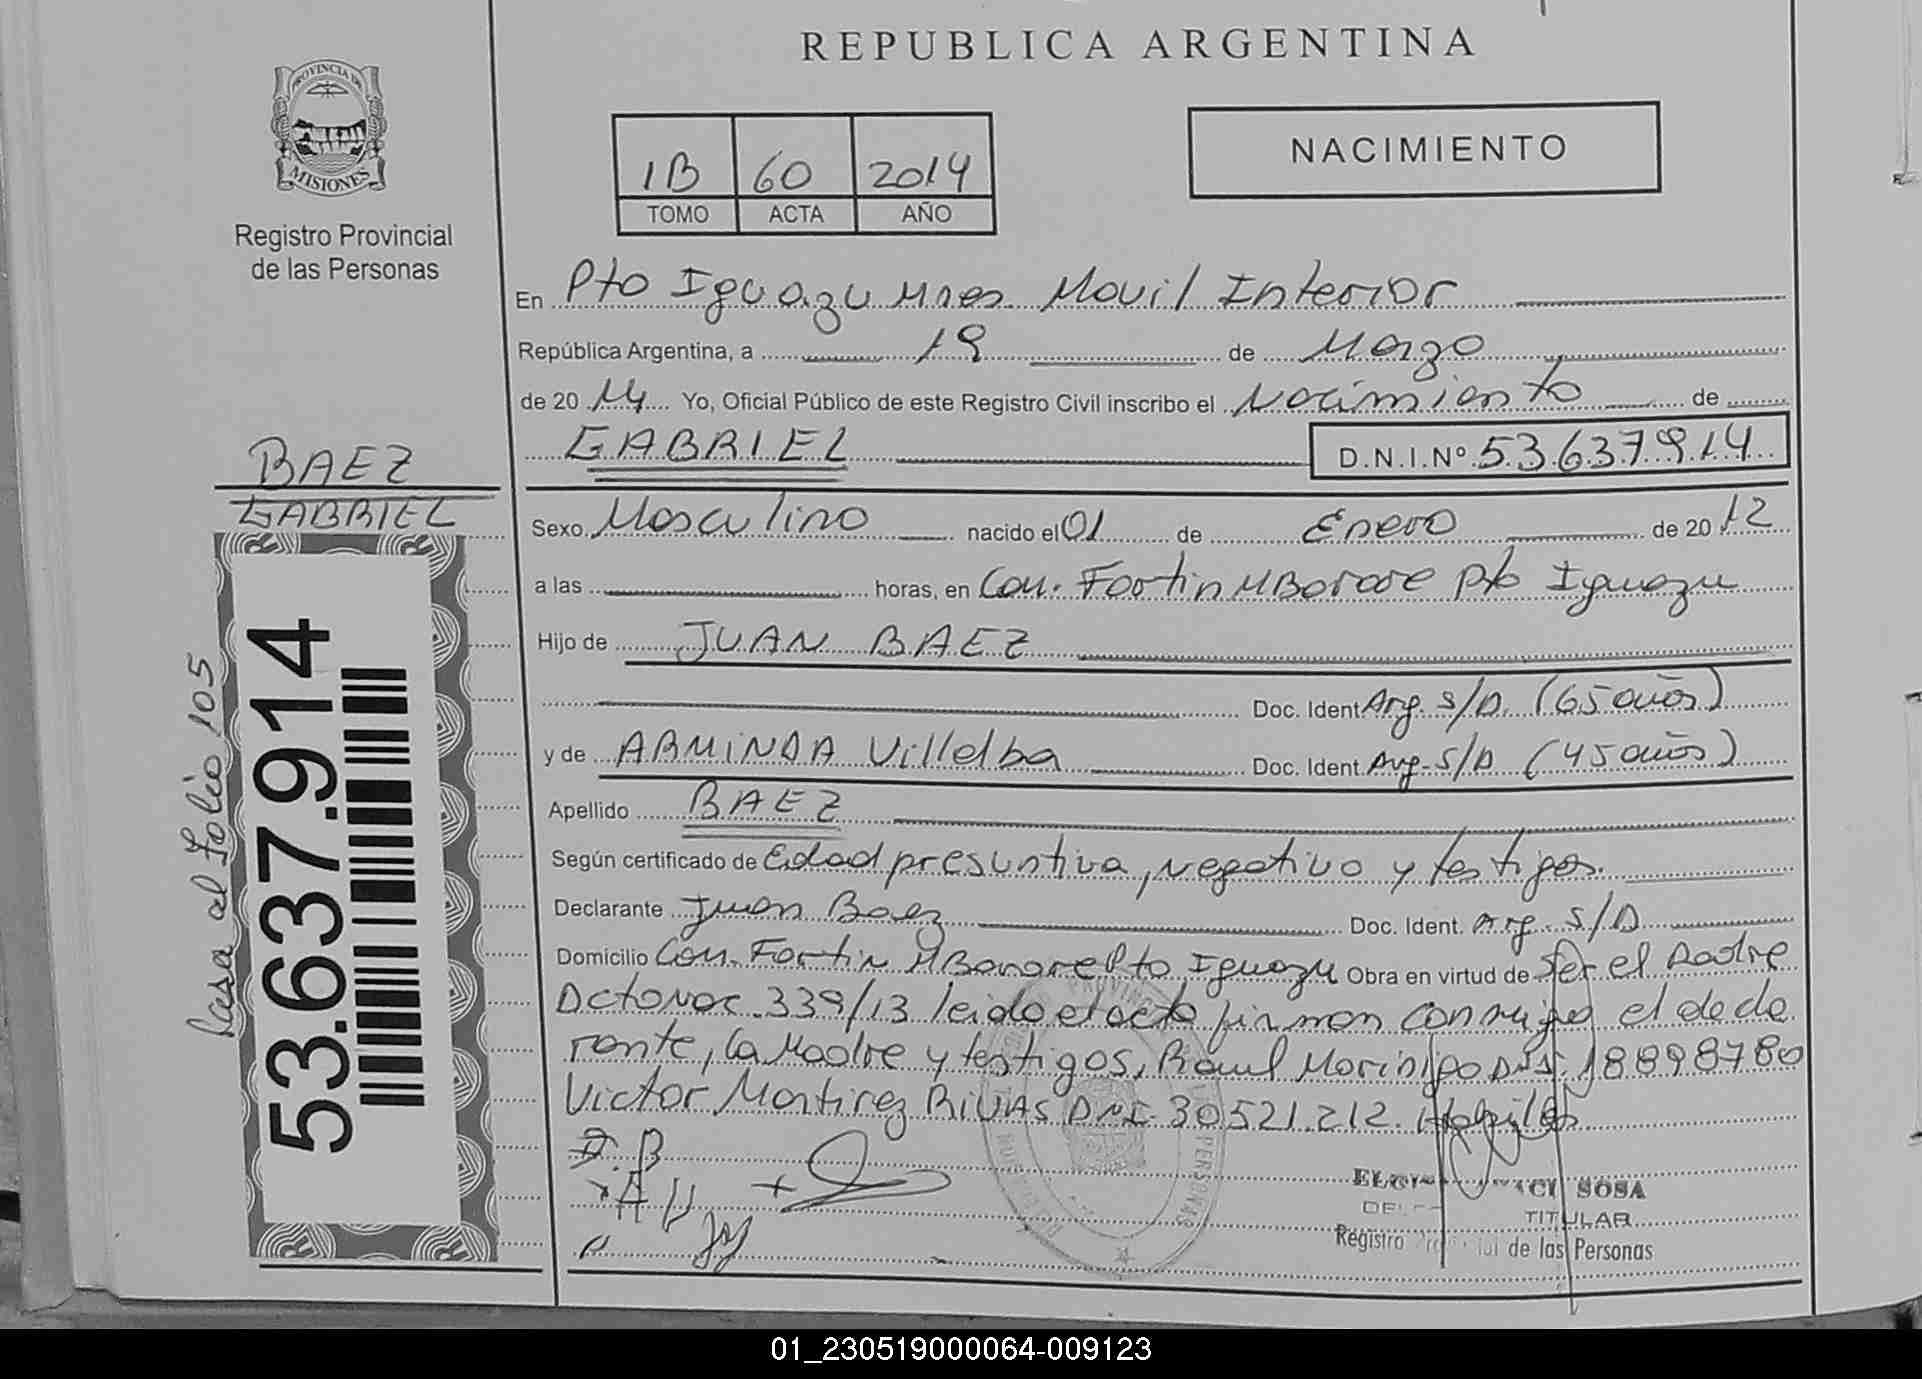 REPUBLICA ARGENTINA
PROVINCIA DE
MISIONES
Registro Provincial
de las Personas
1B 60 2014
TOMO ACTA AÑO
NACIMIENTO
En Pto Iguazu Mnes Movil Interior
República Argentina, a 19 de Marzo
de 2014 Yo, Oficial Público de este Registro Civil inscribo el Nacimiento de
GABRIEL D.N.I.Nº 53.637.914
BAEZ
GABRIEL
Sexo Masculino nacido el 01 de Enero de 2012
a las horas, en Com. Fortin MBorore Pto Iguazu
Hijo de JUAN BAEZ
Doc. Ident Arg. S/D. (65 años)
y de ARMINDA Villalba Doc. Ident. Arg. S/D (45 años)
Apellido BAEZ
Según certificado de Edad presuntiva, negativo y testigos.
Declarante Juan Baez Doc. Ident. Arg. S/D
Domicilio Com. Fortin MBorore Pto Iguazu Obra en virtud de Ser el Padre
Dcto Nac. 339/13 leido el acto firman conmigo el decla
rante, la Madre y testigos, Raul Morinigo DNI. 18898780
Victor Martirez RIVAS DNI. 30521.212. Habiles
J.B
A V
SOSA
TITULAR
Registro de las Personas
53.637.914
Pasa al Folio 105
01_230519000064-009123